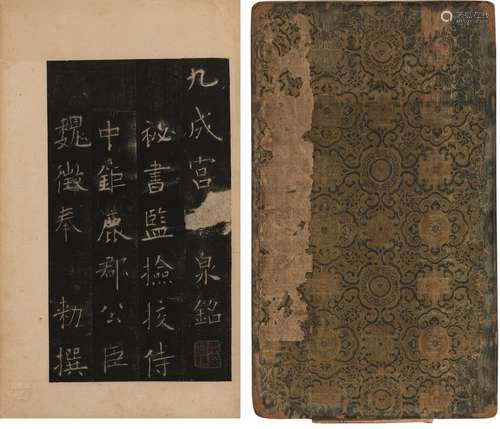 九成宮泉銘
祕書監撿挍侍
中鉅鹿郡公臣
魏徵奉 勑撰